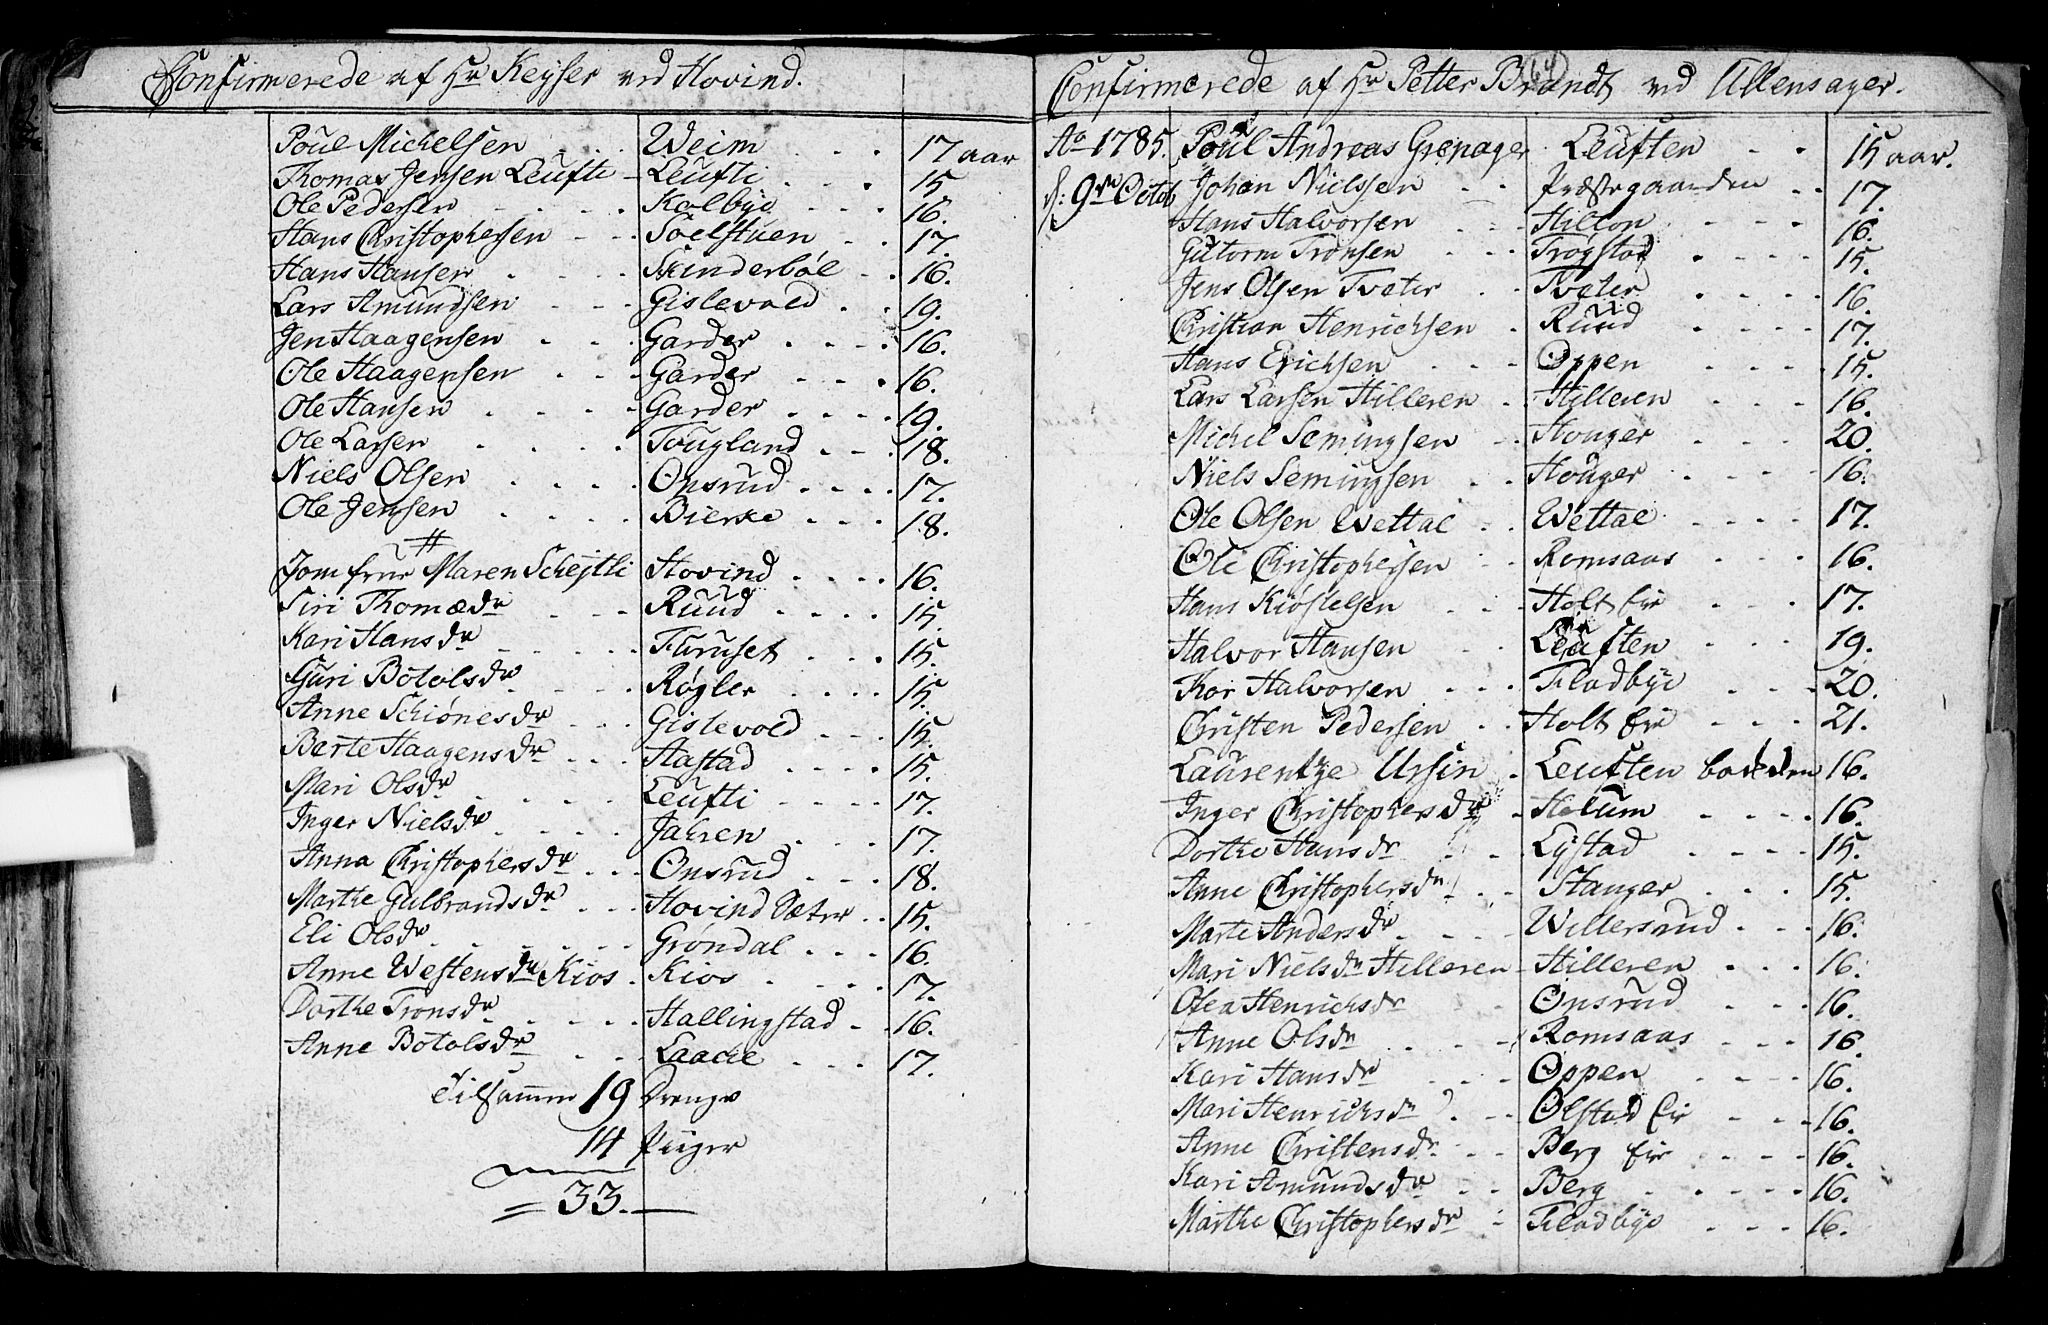 Confirmerede af Hr Keyser ved Hovind.
Poul Michelsen Weim 17 aar
Thomas Jensen Leufti Leufti 15.
Ole Pedersen Kalbye 16.
Hans Christophersen Soelstuen 17.
Hans Hansen Skinderböl 16.
Lars Amundsen Gislevold 19.
Jen Haagensen Garder 16.
Ole Haagensen Garder 16.
Ole Hansen Garder 19.
Ole Larsen Tougland 18.
Niels Olsen Onsrud 17.
Ole Jensen Bierke 18.
Jomfrue Maren Schejtli Hovind 16.
Siri Thomædr Ruud 15.
Kari Hansdr Furuset 15.
Guri Botolsdr Røgler 15.
Anne Schiönesdr Gislevold 15.
Berte Haagensdr Aastad 15.
Mari Olsdr Leufti 17.
Inger Nielsdr Jahren 17.
Anna Christophersdr Onsrud 18.
Marthe Gulbrandsdr Hovind Sæter 15.
Eli Olsdr Gröndal 16.
Anne Westensdr Kios Kios 17.
Dorthe Tronsdr Hallingstad 16.
Anne Botolsdr Laache 17.
Tilsamen 19 Drenge
14 Piiger
33.
Confirmerede af Hr Petter Brandt ved Ullensager.
64
Ao 1785. Poul Andreas Grønager Leuften 15 aar.
d: 9de Octob Johan Nielssen Præstegaarden 17.
Hans Halvorsen Hilton 16.
Gutorm Tronsen Trøgstad 15.
Jens Olsen Tveter Tveter 16.
Christian Henrichsen Ruud 17.
Hans Erichsen Oppen 15.
Lars Larsen Hilleren Hilleren 16.
Michel Semingsen Houger 20.
Niels Semingsen Houger 16.
Ole Olsen Wettal Wettal 17.
Ole Christophersen Romsaas 16.
Hans Kiöstelsen Holt Eie 17.
Halvor Hansen Leuften 19.
Thor Halvorsen Fladbye 20.
Christen Pedersen Holt Eie 21.
Laurentze Ursin Leuften 16.
Inger Christophersdr Helum 16.
Dorthe Hansdr Lystad 15.
Anne Christophersdr Hauger 15.
Marte Andersdr Willersrud 16.
Mari Nielsdr Hilleren Hilleren 16.
Olea Henrichsdr Onsrud 16.
Anne Olsdr Romsaas 16.
Kari Hansdr Oppen 16.
Mari Henrichsdr Ölstad Eie 16.
Anne Christensdr Berg Eie 16.
Kari Amundsdr Berg 16.
Marthe Christophersdr Fladbye 16.